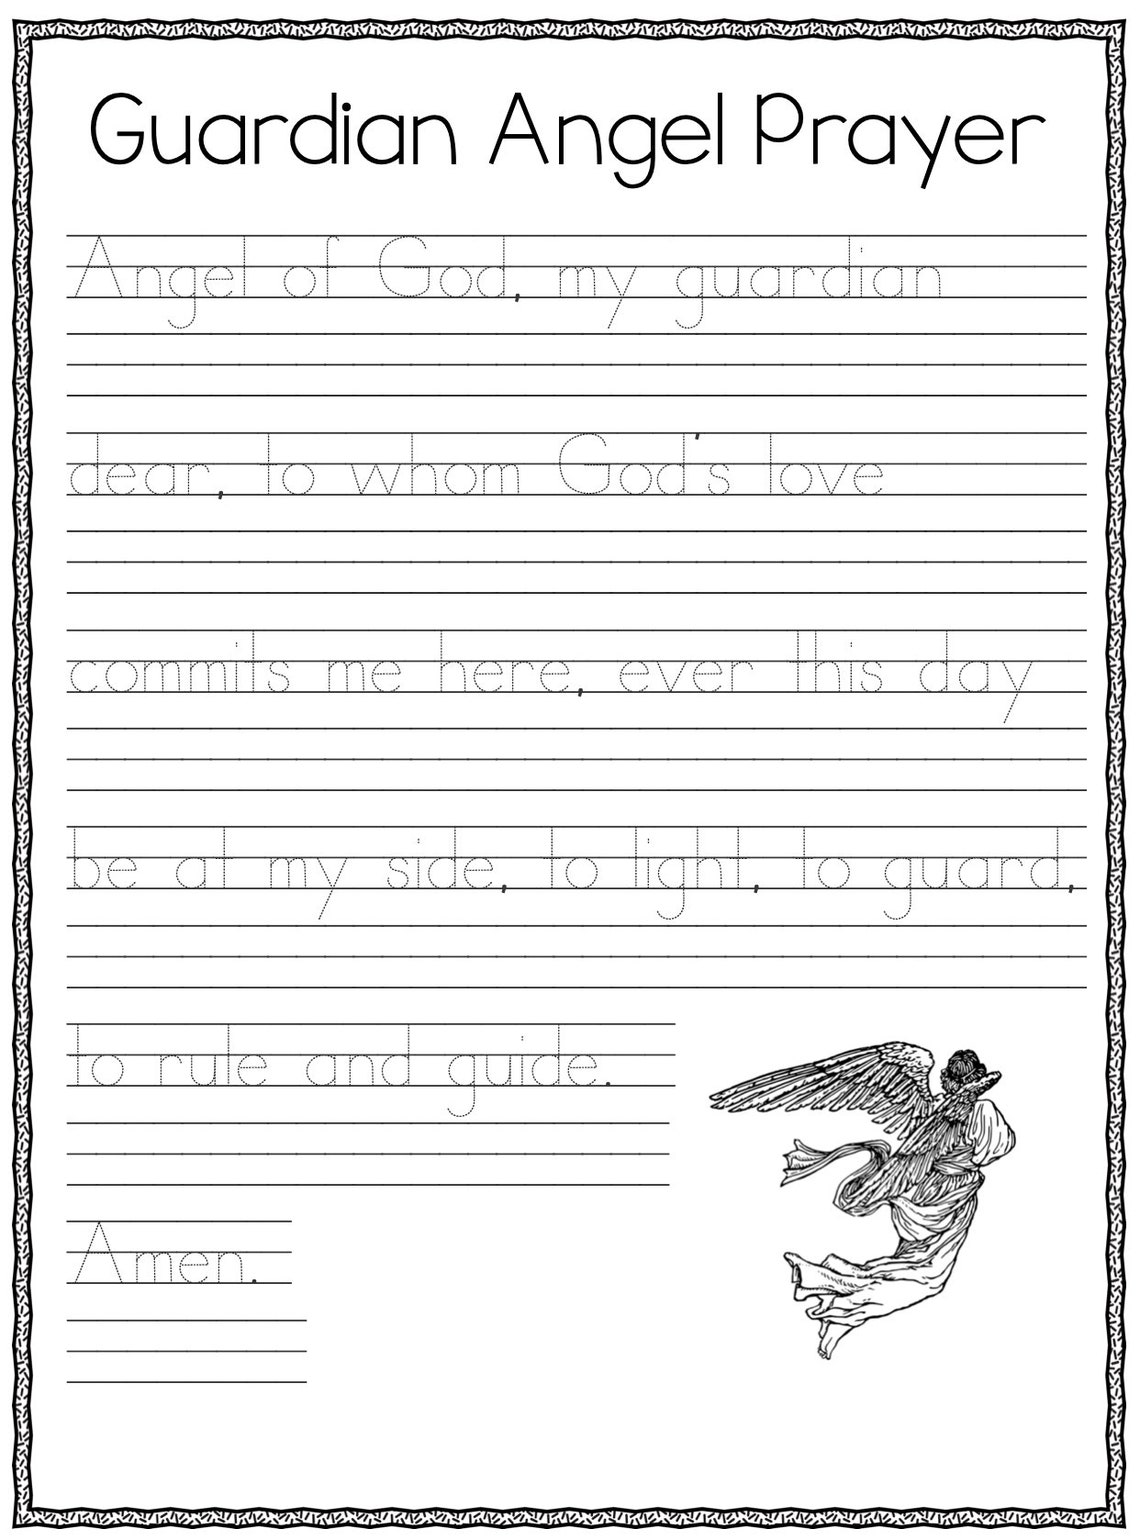 Guardian Angel Prayer
Angel of God, my guardian
dear, to whom God's love
commits me here, ever this day
be at my side, to light, to guard,
to rule and guide.
Amen.